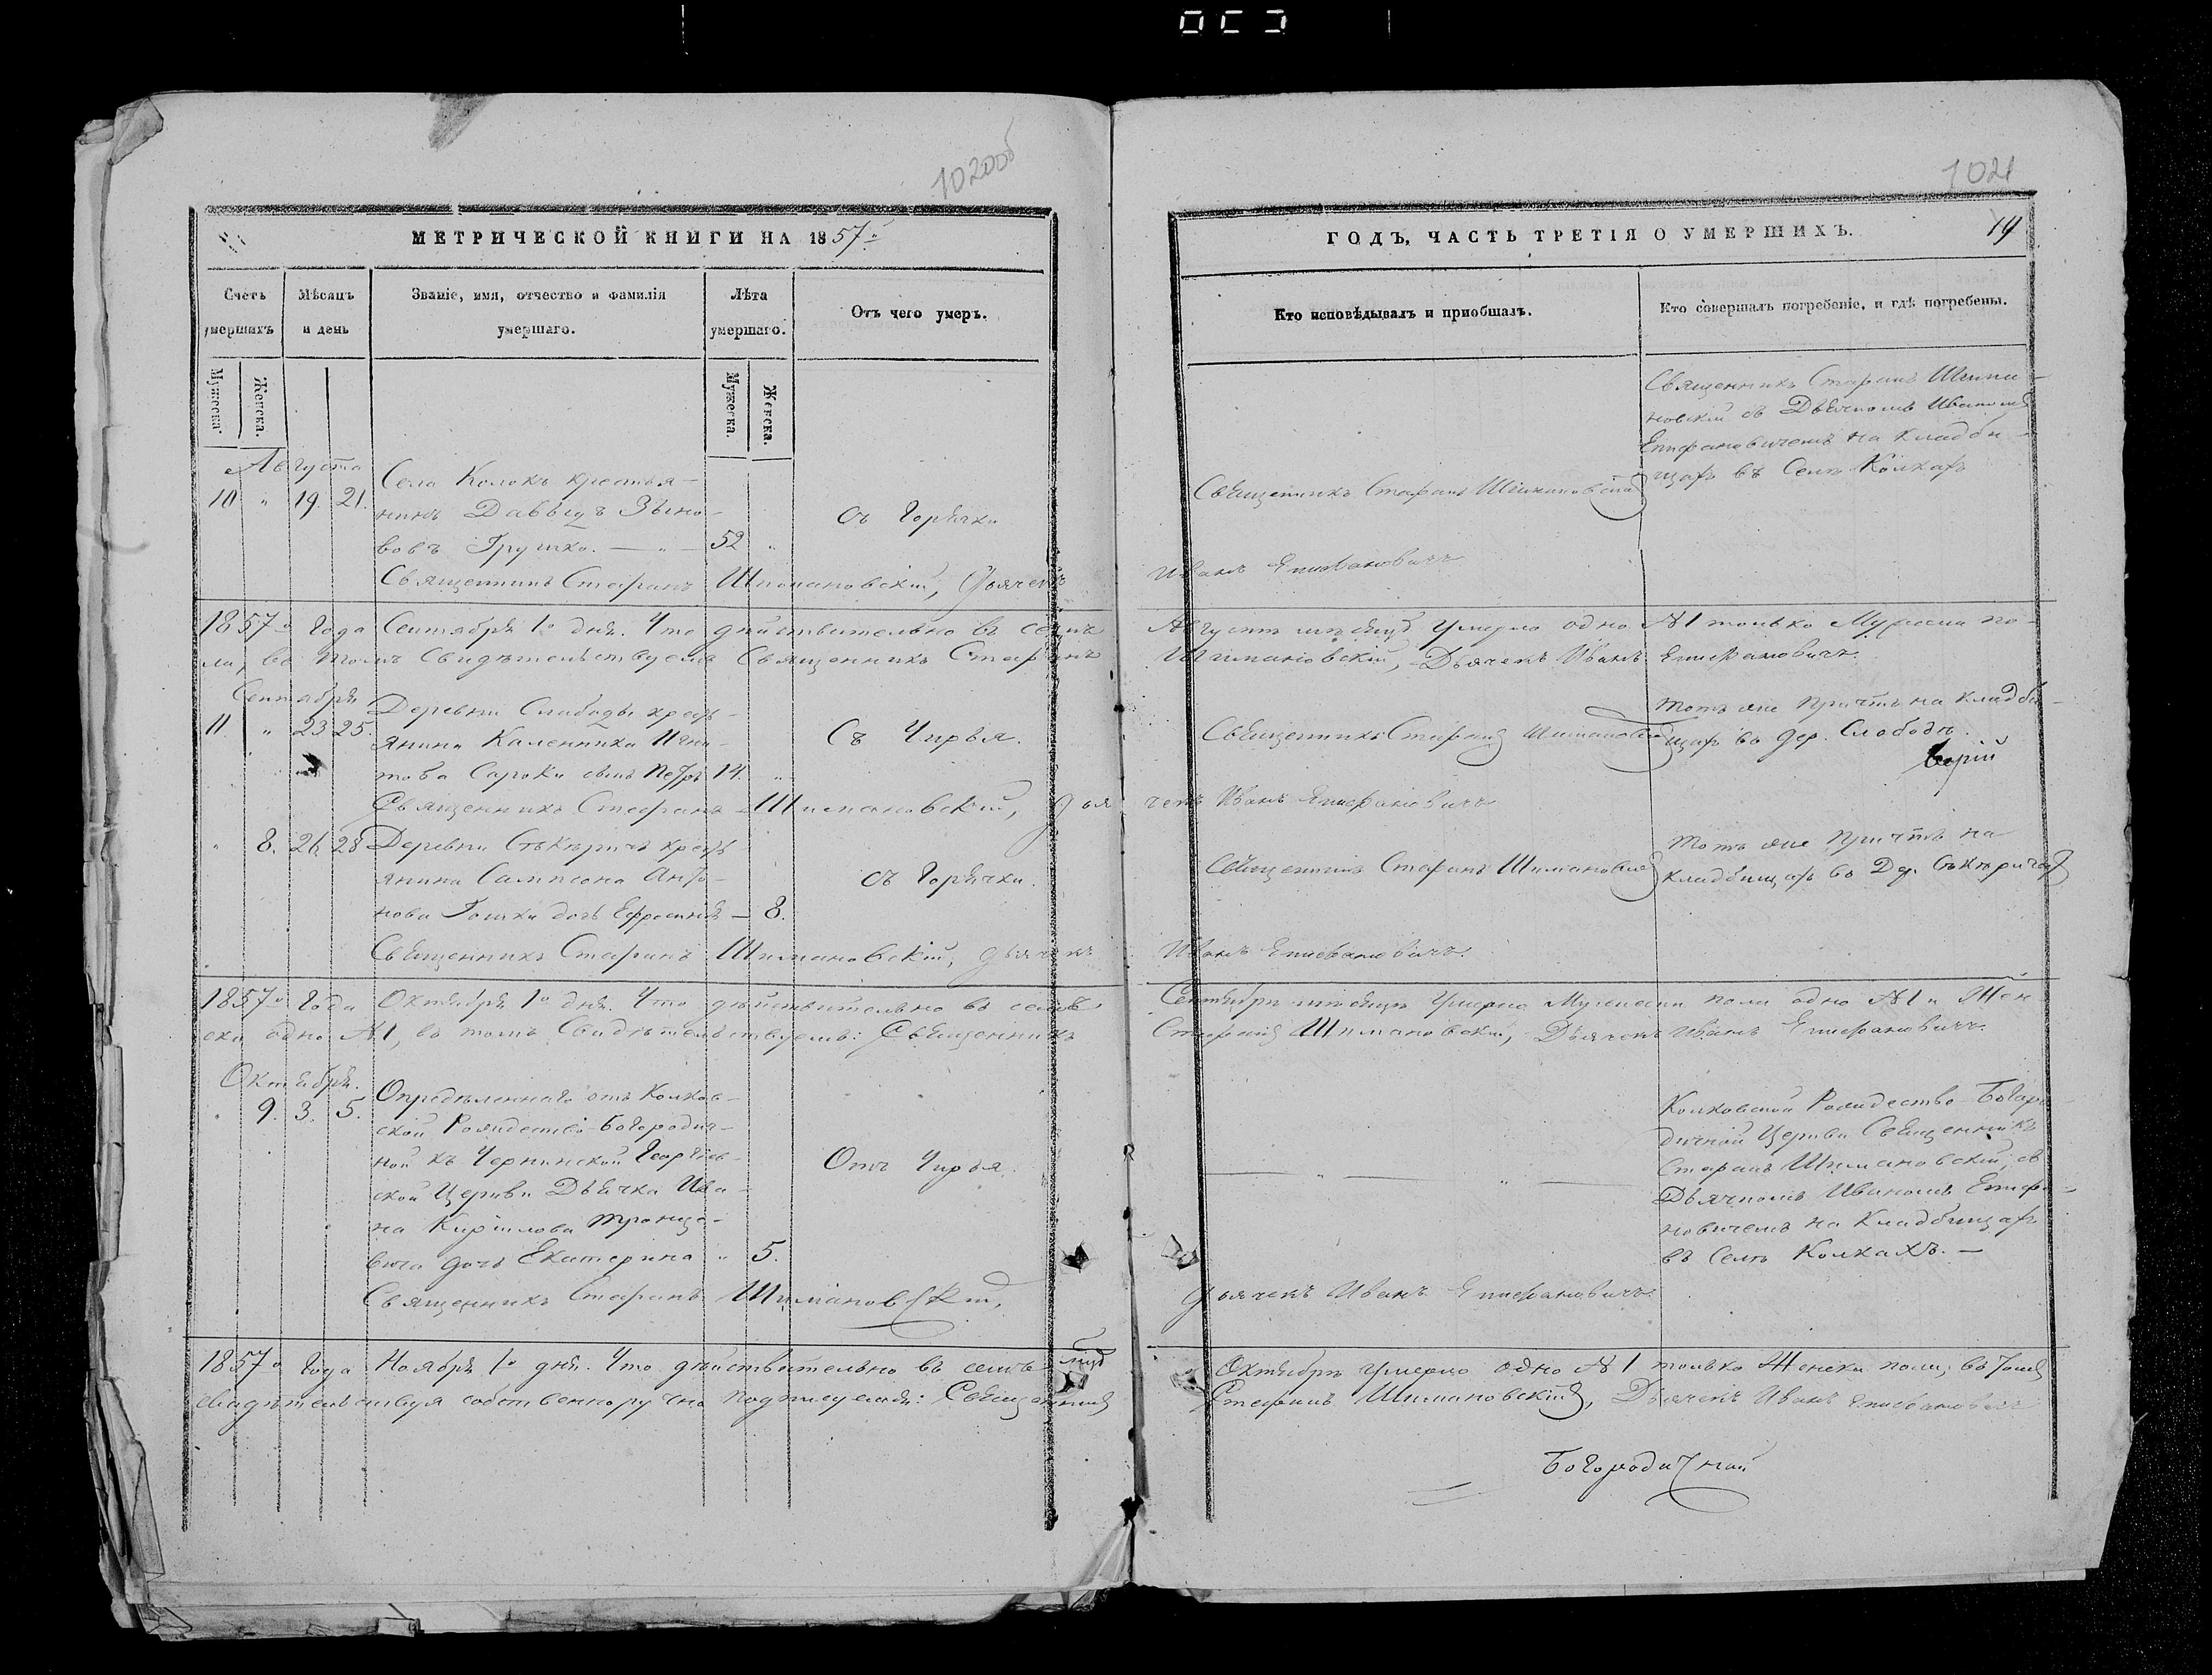 1020об
МЕТРИЧЕСКОЙ КНИГИ НА 1857го
Счетъ умершихъ
Мѣсяцъ и день
Званіе, имя, отчество и фамилія умершаго.
Лѣта умершаго.
Отъ чего умеръ.
Мужеска.
Женска.
Мужеска.
Женска.
Августа
10 " 19. 21.
Села Колокъ крестья-
нинъ Даввыдъ
вовъ Грушко. — " — 52 "
Съ Горячки
Священникъ Стефанъ Шимановскій, Дьячекъ
1857го Года Сентября 1го дня. Что дѣйствительно въ семъ
ла, въ томъ Свидѣтельствуемъ Священникъ Стефанъ
Сентября
11. " 23 25.
Деревни Слабоды кресть-
янина Каленника Игна-
това Сароки сынъ Петръ 14. "
Съ Чирья.
Священникъ Стефанъ Шимановскій, Дья
" 8. 26. 28
Деревни кресть-
янина Сампсона Анто-
нова дочь Ефросинія — 8.
съ Горячки.
Священникъ Стефанъ Шимановскій, Дьячекъ
1857го Года Октября 1го дня. Что дѣйствительно въ семъ
ска одно №1, въ томъ Свидѣтельствуемъ: Священникъ
Октября.
" 9. 3. 5.
Опредѣленнаго отъ Колков-
ской Рождество-Богородич-
ной къ Чернинской Георгіев-
ской Церкви Дьячка Ива-
на Кирилова
вича дочь Екатерина " 5.
Отъ Чирья.
Священникъ Стефанъ Шимановскій,
1857го Года Ноября 1го дня. Что дѣйствительно въ семъ
свидѣтельствуя собственноручно подписуемся: Священникъ
1021
ГОДЪ, ЧАСТЬ ТРЕТІЯ О УМЕРШИХЪ.
19
Кто исповѣдывалъ и приобщалъ.
Кто совершалъ погребеніе, и гдѣ погребены.
Священникъ Стефанъ Шимановскій
Священникъ Стефанъ Шима-
новскій съ Дьячкомъ Иваномъ
Епифановичемъ на кладби-
щахъ въ Селѣ Колкахъ
Иванъ Епифановичъ
Августѣ мѣсяцѣ Умерло одно №1 только Мужеска по-
Шимановскій, Дьячекъ Иванъ Епифановичъ.
Священникъ Стефанъ Шимановскій
тотъ же Причтъ на Кладби-
щахъ въ дер. Слободѣ.
чекъ Иванъ Епифановичъ
Священникъ Стефанъ Шимановскій
Тотъ же Причтъ на
Кладбищахъ въ Дер.
Иванъ Епифановичъ.
Сентябрѣ мѣсяцѣ Умерло Мужеска пола одно №1 и Жен
Стефанъ Шимановскій, Дьячекъ Иванъ Епифановичъ.
Колковской Рождество-Богоро-
дичной Церкви Священникъ
Стефанъ Шимановскій, съ
Дьячкомъ Иваномъ Епифа-
новичемъ на Кладбищахъ
въ Селѣ Колкахъ. —
Дьячекъ Иванъ Епифановичъ
Октябрѣ Умерло одно №1 только Женска пола, въ томъ
Стефанъ Шимановскій, Дьячекъ Иванъ Епифановичъ
Богородичной